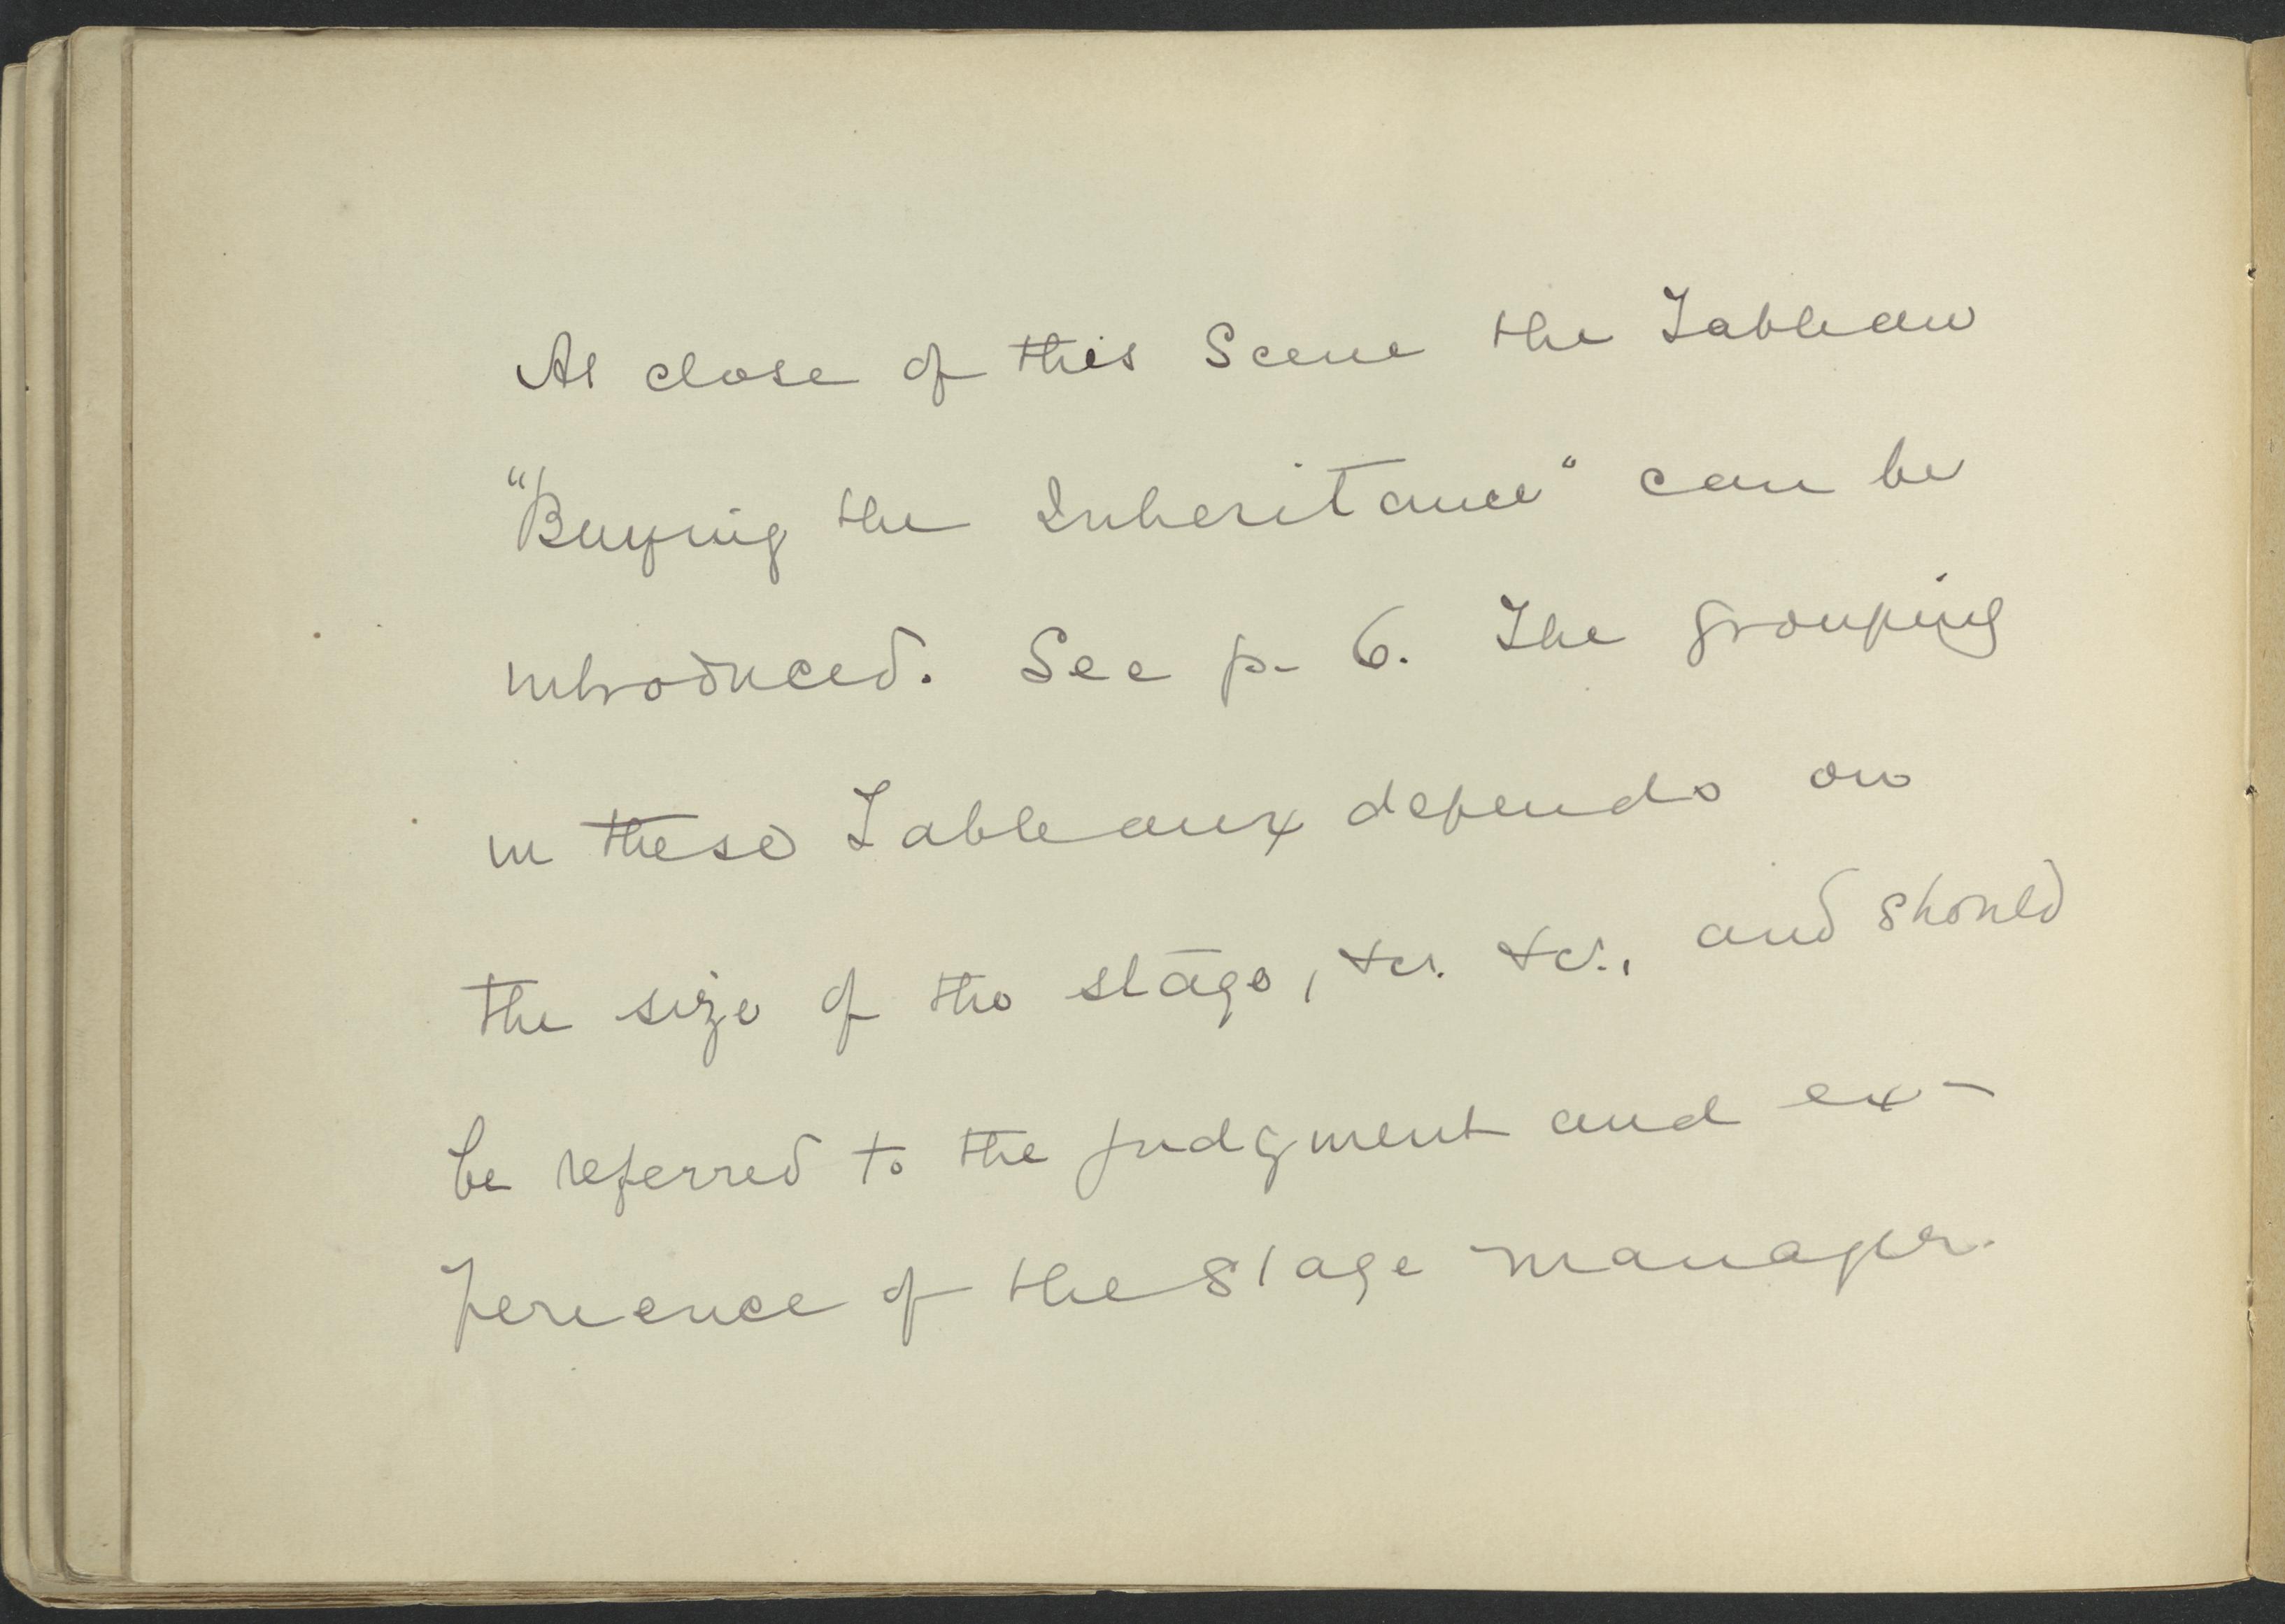 At close of this Scene the Tableau
"Buying the Inheritance" can be
introduced. See p. 6. The grouping
in these Tableaux depends on
the size of the stage, &c. &c., and should
be referred to the judgment and ex-
perience of the stage manager.